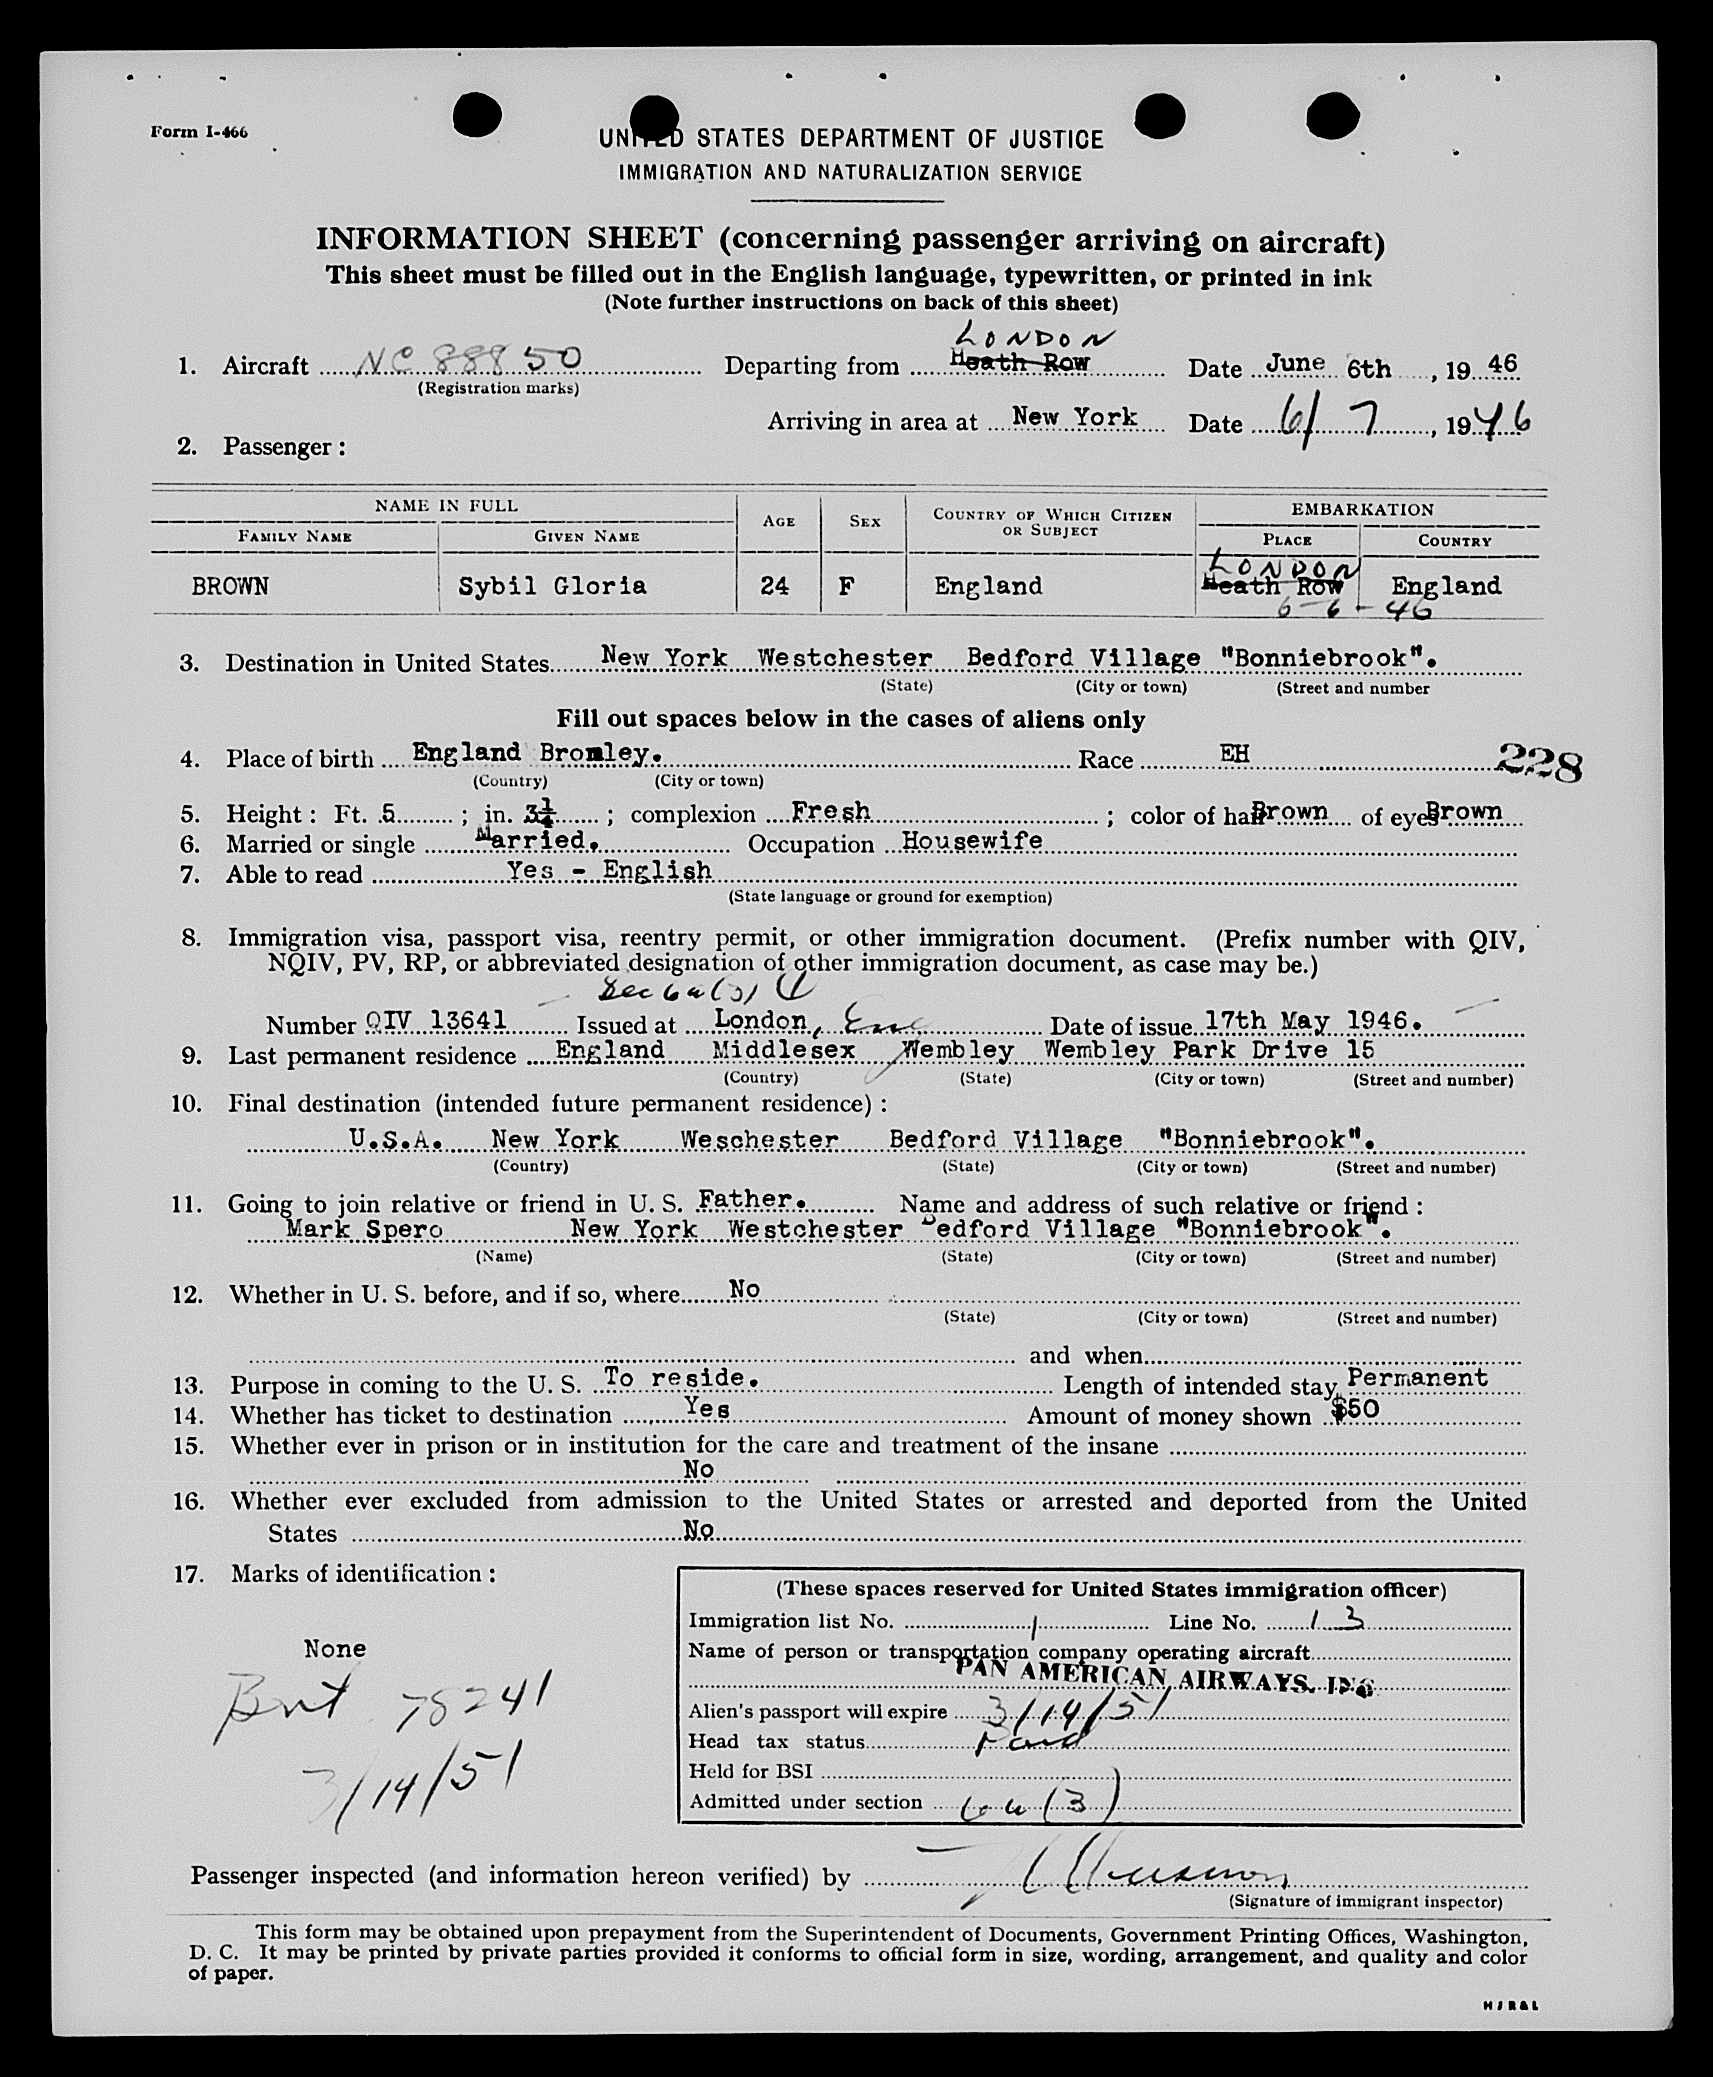 Form I-466
UNITED STATES DEPARTMENT OF JUSTICE
IMMIGRATION AND NATURALIZATION SERVICE
INFORMATION SHEET (concerning passenger arriving on aircraft)
This sheet must be filled out in the English language, typewritten, or printed in ink
(Note further instructions on back of this sheet)
LONDON
1. Aircraft NC 88850 Departing from Heath Row Date June 6th, 1946
(Registration marks)
Arriving in area at New York Date 6/7, 1946
2. Passenger:
NAME IN FULL AGE SEX COUNTRY OF WHICH CITIZEN OR SUBJECT EMBARKATION
FAMILY NAME GIVEN NAME PLACE COUNTRY
LONDON
BROWN Sybil Gloria 24 F England Heath Row England
6-6-46
3. Destination in United States New York Westchester Bedford Village "Bonniebrook".
(State) (City or town) (Street and number
Fill out spaces below in the cases of aliens only
4. Place of birth England Bromley. Race EH 228
(Country) (City or town)
5. Height: Ft. 5; in. 3¼; complexion Fresh; color of hair Brown of eyes Brown
6. Married or single Married. Occupation Housewife
7. Able to read Yes - English
(State language or ground for exemption)
8. Immigration visa, passport visa, reentry permit, or other immigration document. (Prefix number with QIV,
NQIV, PV, RP, or abbreviated designation of other immigration document, as case may be.)
Sec 6a(3)
Number QIV 13641 Issued at London, Eng Date of issue 17th May 1946.
9. Last permanent residence England Middlesex Wembley Wembley Park Drive 15
(Country) (State) (City or town) (Street and number)
10. Final destination (intended future permanent residence):
U.S.A. New York Weschester Bedford Village "Bonniebrook".
(Country) (State) (City or town) (Street and number)
11. Going to join relative or friend in U. S. Father. Name and address of such relative or friend:
Mark Spero New York Westchester Bedford Village "Bonniebrook".
(Name) (State) (City or town) (Street and number)
12. Whether in U. S. before, and if so, where No
(State) (City or town) (Street and number)
and when
13. Purpose in coming to the U. S. To reside. Length of intended stay Permanent
14. Whether has ticket to destination Yes Amount of money shown $50
15. Whether ever in prison or in institution for the care and treatment of the insane
No
16. Whether ever excluded from admission to the United States or arrested and deported from the United
States No
17. Marks of identification:
None
Brit 78241
3/14/51
(These spaces reserved for United States immigration officer)
Immigration list No. 1 Line No. 13
Name of person or transportation company operating aircraft
PAN AMERICAN AIRWAYS, INC
Alien's passport will expire 3/14/51
Head tax status Paid
Held for BSI
Admitted under section 6a (3)
Passenger inspected (and information hereon verified) by
(Signature of immigrant inspector)
This form may be obtained upon prepayment from the Superintendent of Documents, Government Printing Offices, Washington,
D. C. It may be printed by private parties provided it conforms to official form in size, wording, arrangement, and quality and color
of paper.